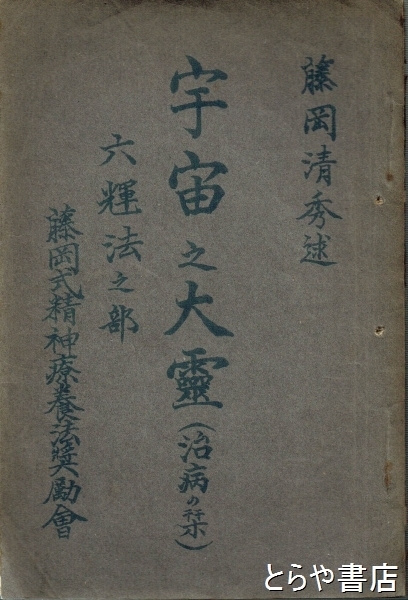 藤岡清秀述
宇宙之大靈（治病の栞）
六輝法之部
藤岡式精神療養法奨勵會
とらや書店